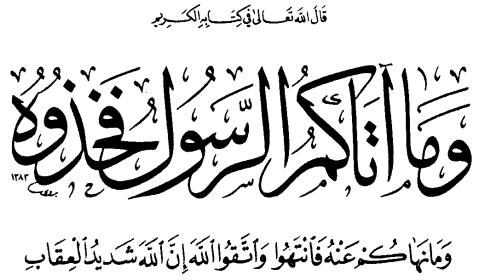 قَالَ اللهُ تَعَالَىٰ فِي كِتَابِهِ الكَرِيمِ
وَمَا آتَاكُمُ الرَّسُولُ فَخُذُوهُ
١٣٨٣
وَمَا نَهَاكُمْ عَنْهُ فَانْتَهُوا وَاتَّقُوا اللهَ إِنَّ اللهَ شَدِيدُ الْعِقَابِ